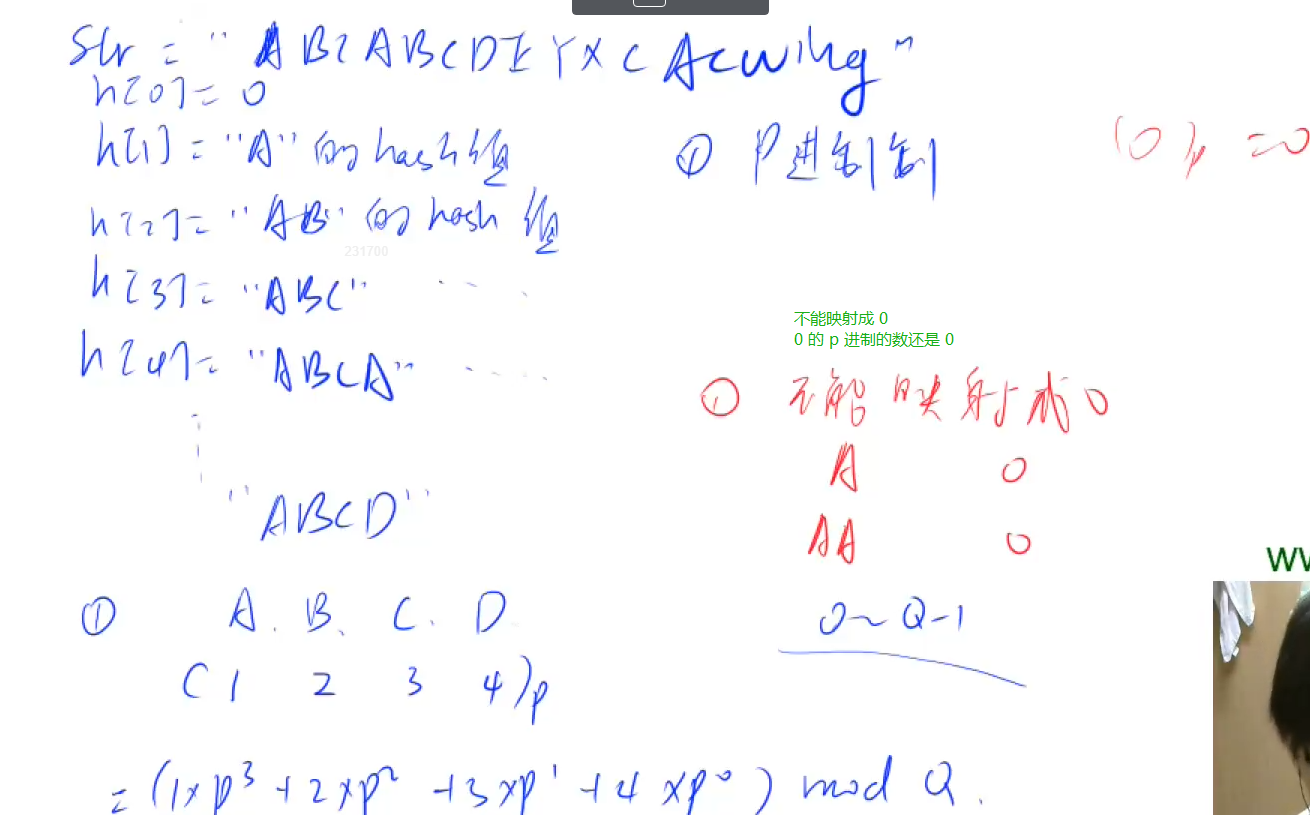 Str = "ABCABCDEYXCAcwing"
h[0] = 0
h[1] = "A"的hash值
h[2] = "AB"的hash值
231700
h[3] = "ABC" ....
h[4] = "ABCA" ....
"ABCD"
① A. B、 C. D
( 1 2 3 4 )p
= (1×p³ + 2×p² + 3×p¹ + 4×p⁰) mod Q.
① P进制制
(0)p = 0
不能映射成 0
0 的 p 进制的数还是 0
① 不能映射成0
A 0
AA 0
0~Q-1